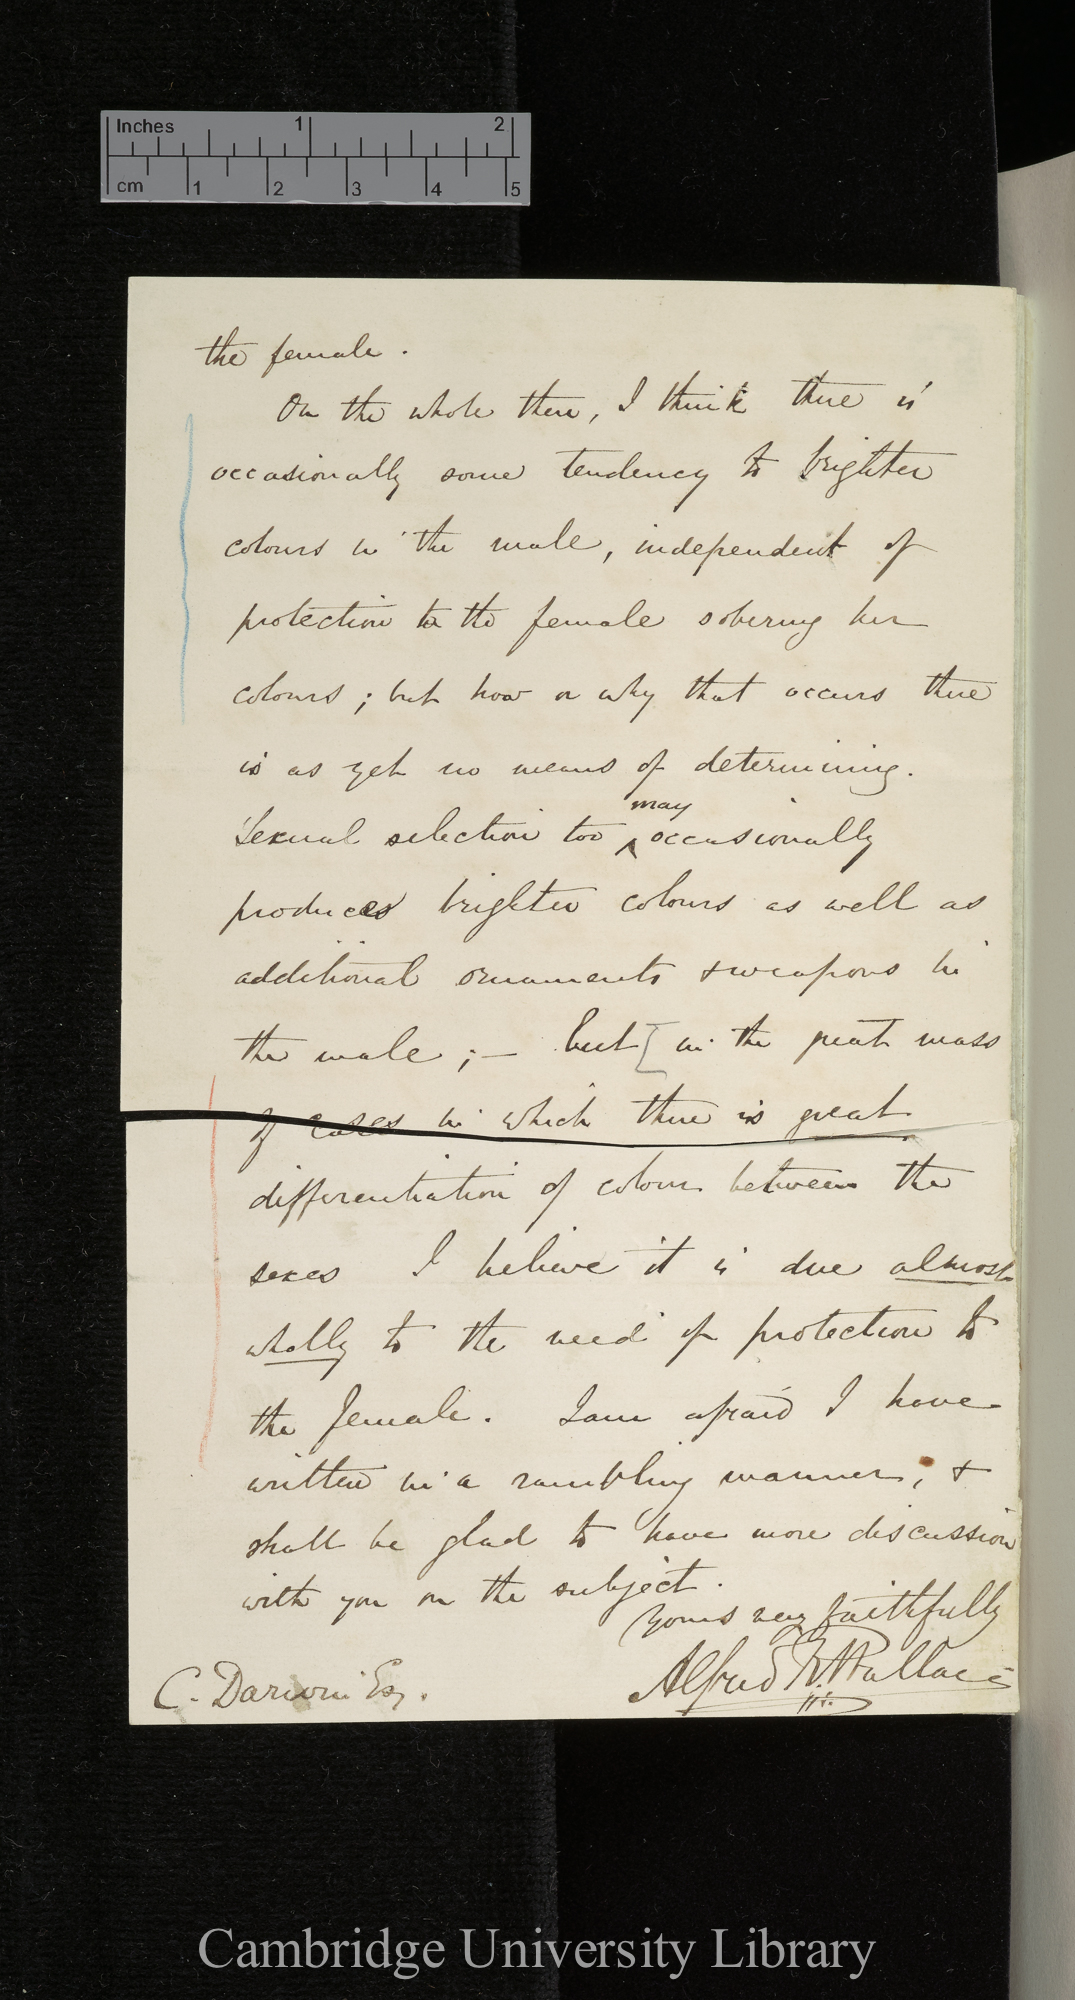 Inches 1 2
cm 1 2 3 4 5
the female.
On the whole then, I think there is
occasionally some tendency to brighter
colours in the male, independent of
protection to the female sobering her
colours; but how or why that occurs there
is as yet no means of determining.
Sexual selection too may occasionally
produces brighter colours as well as
additional ornaments & weapons in
the male; — but [in the great mass
of cases in which there is great
differentiation of colour between the
sexes I believe it is due almost
wholly to the need of protection to
the female. I am afraid I have
written in a rambling manner, &
shall be glad to have more discussion
with you on the subject.
Yours very faithfully
Alfred R. Wallace
C. Darwin Esq.
Cambridge University Library